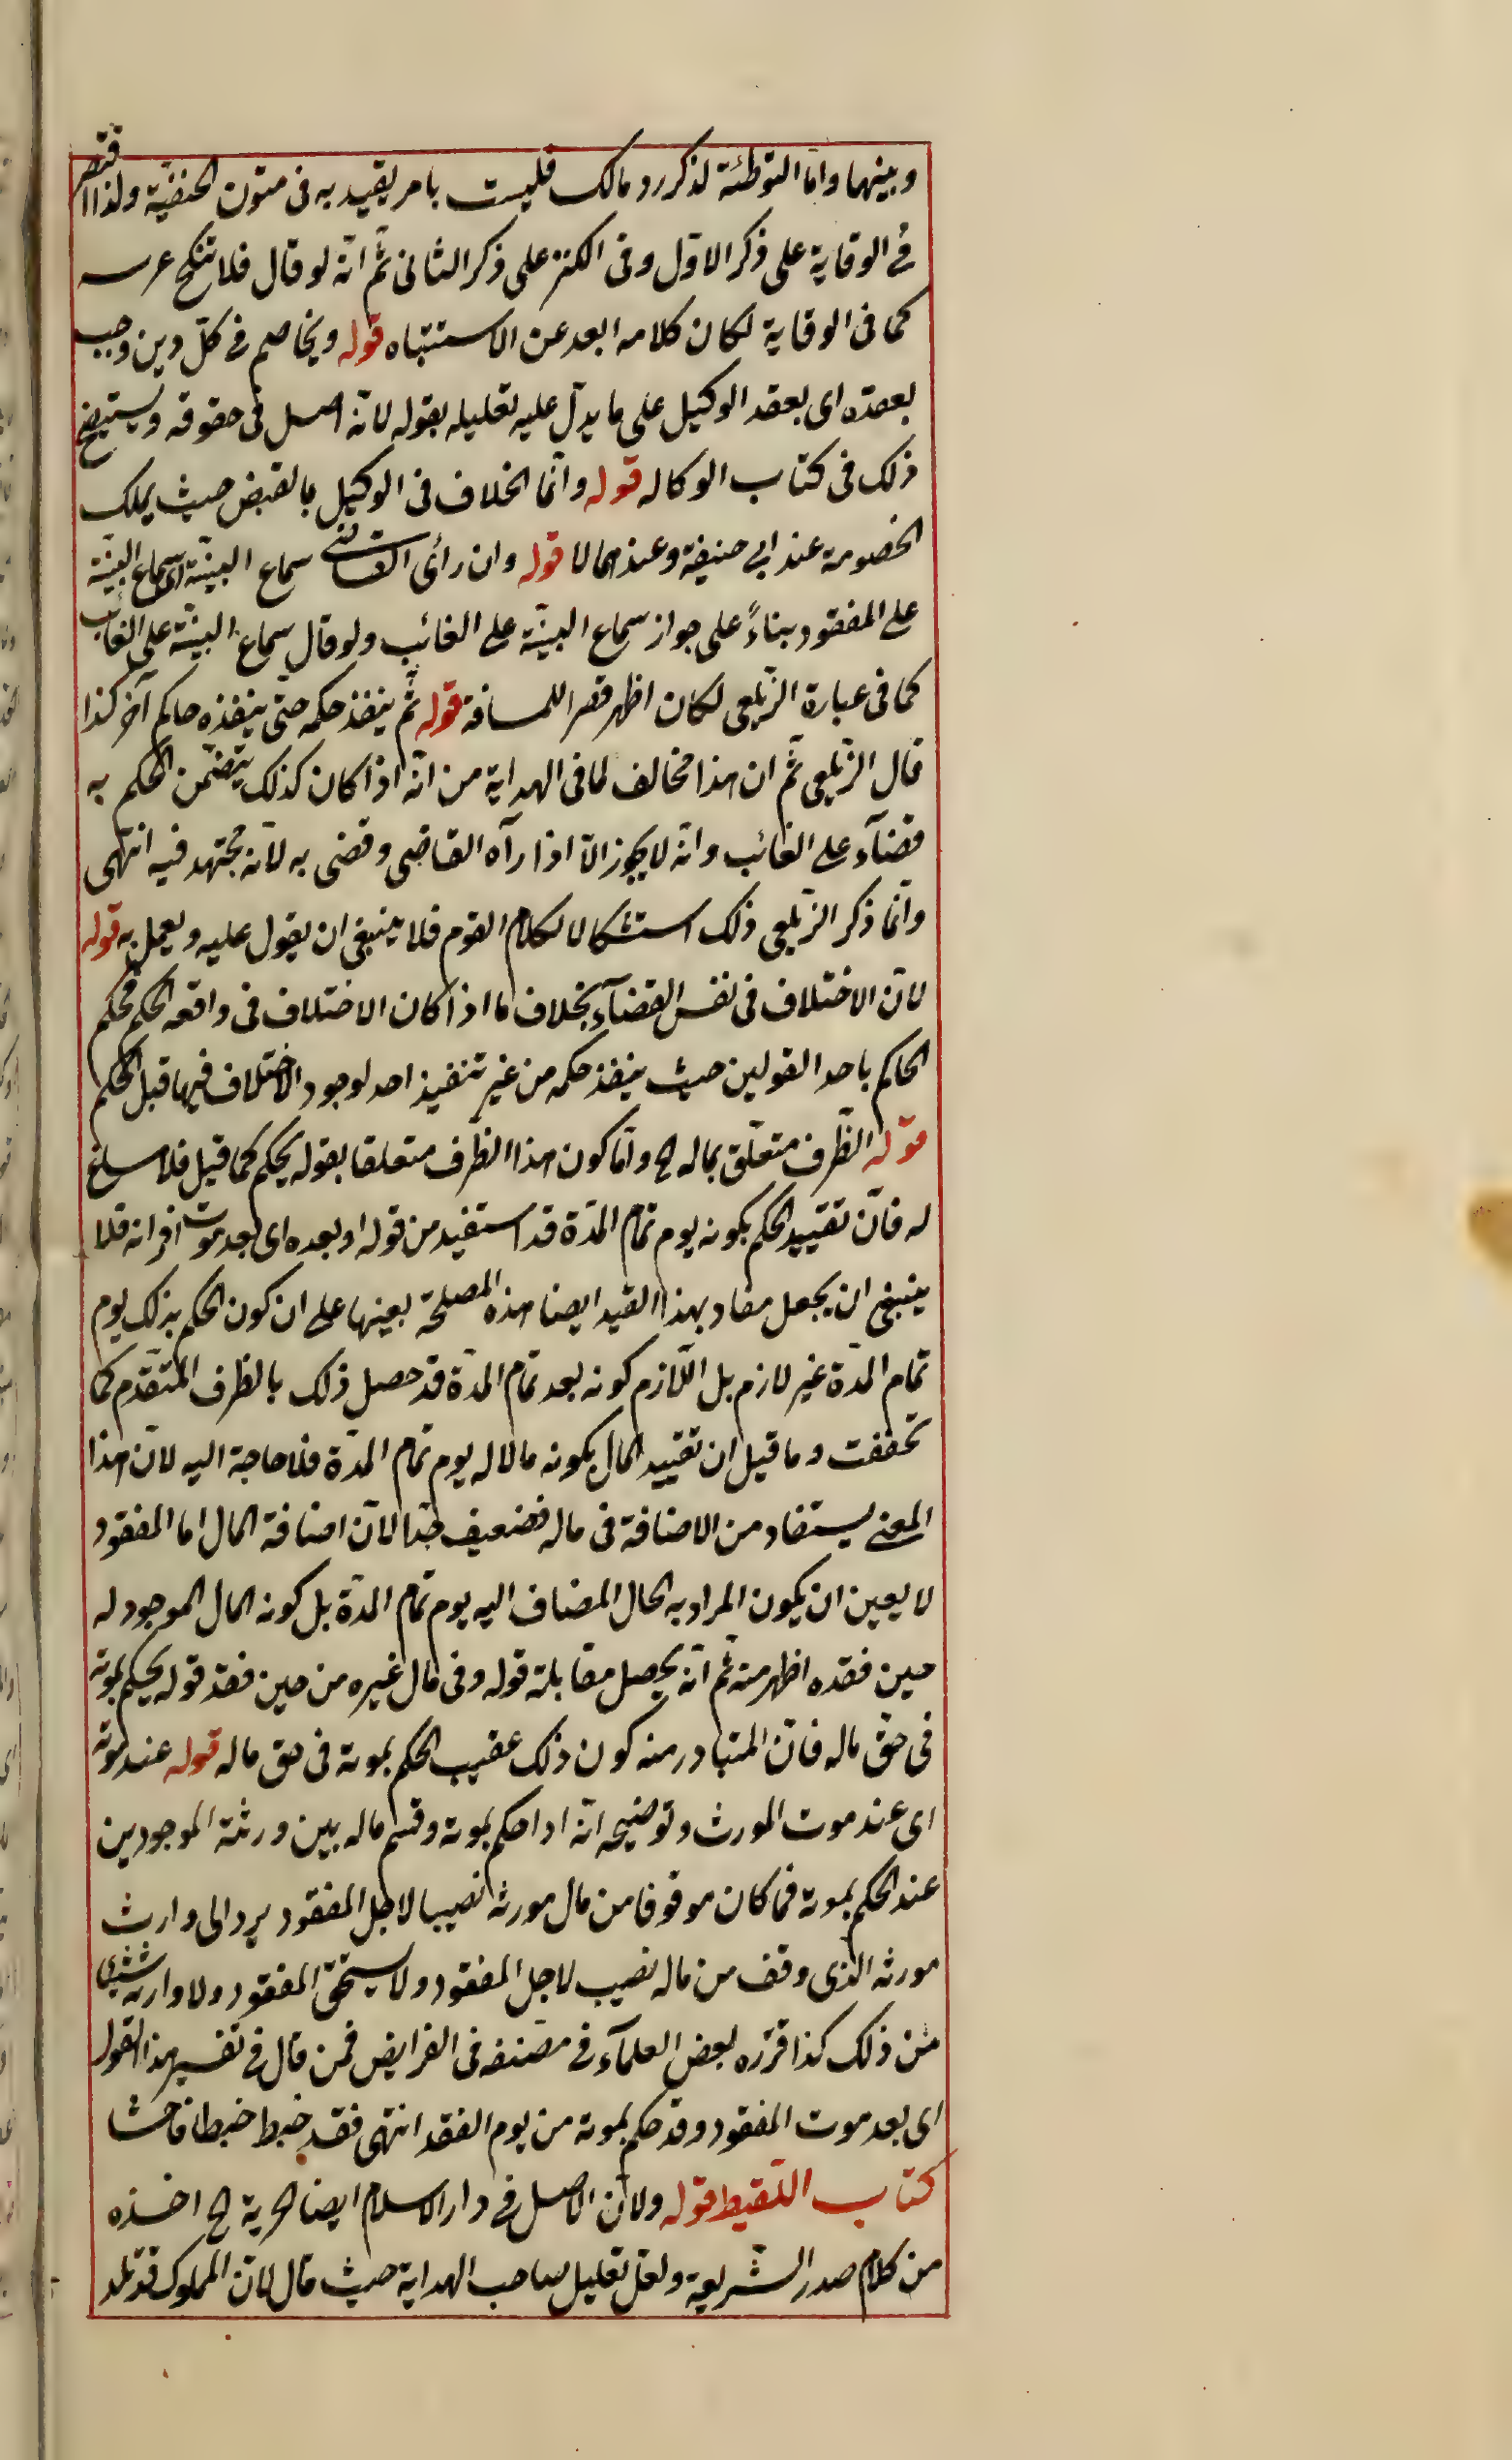 وبينهما وامّا التوطئة لذكر رد مالك فليست بامر يقيد به فى متون الحنفيّة ولذا اقتصر
فى الوقاية على ذكر الاوّل وفى الكنز على ذكر الثانى ثمّ انّه لو قال فلا تنكح عرسه
كما فى الوقاية لكان كلامه ابعد عن الاستتباه قوله ويخاصم فى كلّ دين وجب
بعقده اى بعقد الوكيل على ما يدلّ عليه تعليله بقوله لانّه اصل فى حقوقه وستيضح
ذلك فى كتاب الوكاله قوله وانّما الخلاف فى الوكيل بالقبض حيث يملك
الخصومة عند ابى حنيفة وعندهما لا قوله وان رأى القاضى سماع البيّنة اى سماع البيّنة
على المفقود بناءً على جواز سماع البيّنة على الغائب ولو قال سماع البيّنة على الغائب
كما فى عبارة الزّيلعى لكان اظهر قصرا للمسافة قوله ثمّ ينفذ حكمه حتّى ينفذه حاكم آخر كذا
قال الزّيلعى ثمّ ان هذا مخالف لما فى الهداية من انّه اذا كان كذلك يتضمّن الحكم به
قضآء على الغائب وانّه لا يجوز الّا اذا رآه القاضى وقضى به لانّه مجتهد فيه انتهى
وانّما ذكر الزّيلعى ذلك استشكالا لكلام القوم فلا ينبغى ان يقول عليه ويعمل به قوله
لانّ الاختلاف فى نفس القضآء بخلاف ما اذا كان الاختلاف فى واقعه الحكم فحكم
الحاكم باحد القولين حيث ينفذ حكمه من غير تنفيذ احد لوجود الاختلاف فيها قبل الحكم
قوله الظّرف متعلّق بماله ح وامّا كون هذا الظّرف متعلقا بقوله يحكم كما قيل فلا مساغ
له فانّ تقييد الحكم بكونه يوم تمام المدّة قد استفيد من قوله او بعده اى بعد موت اقرانه فلا
ينبغى ان يجعل مفاد بهذا القيد ايضا هذه المصلحة بعينها على ان كون الحكم بذلك يوم
تمام المدّة غير لازم بل اللّازم كونه بعد تمام المدّة قد حصل ذلك بالظرف المتقدّم كما
تحققت وما قيل ان تقييد المال بكونه مالا له يوم تمام المدّة فلا حاجة اليه لانّ هذا
المعنى يستفاد من الاضافة فى ماله فضعيف جدّا لانّ اضافة المال اما المفقود
لا يعين ان يكون المراد به الحال المضاف اليه يوم تمام المدّة بل كونه المال الموجود له
حين فقده اظهر منه ثمّ انّه يحصل مقابلة قوله وفى مال غيره من حين فقد قوله يحكم بموته
فى حقّ ماله فانّ المتبادر منه كون ذلك عقيب الحكم بموته فى حق ماله قوله عند موته
اى عند موت المورث وتوضيحه انّه اذا حكم بموته وقسم ماله بين ورثته الموجودين
عند الحكم بموته فما كان موقوفا من مال مورثه نصيبا لاجل المفقود يرد الى وارث
مورثه الذى وقف من ماله نصيب لاجل المفقود ولا يستحقّ المفقود ولا وارثه شيئا
من ذلك كذا قرّره بعض العلمآء فى مصنّفه فى الفرايض فمن قال فى تفسير هذا القول
اى بعد موت المفقود وقد حكم بموته من يوم الفقد انتهى فقد خبط خبطا فاحشا
كتاب اللّقيط قوله ولانّ الاصل فى دار الاسلام ايضا الحرية ح اخذه
من كلام صدر الشّريعة ولعلّ تعليل صاحب الهداية حيث قال لانّ المملوك قد تلد